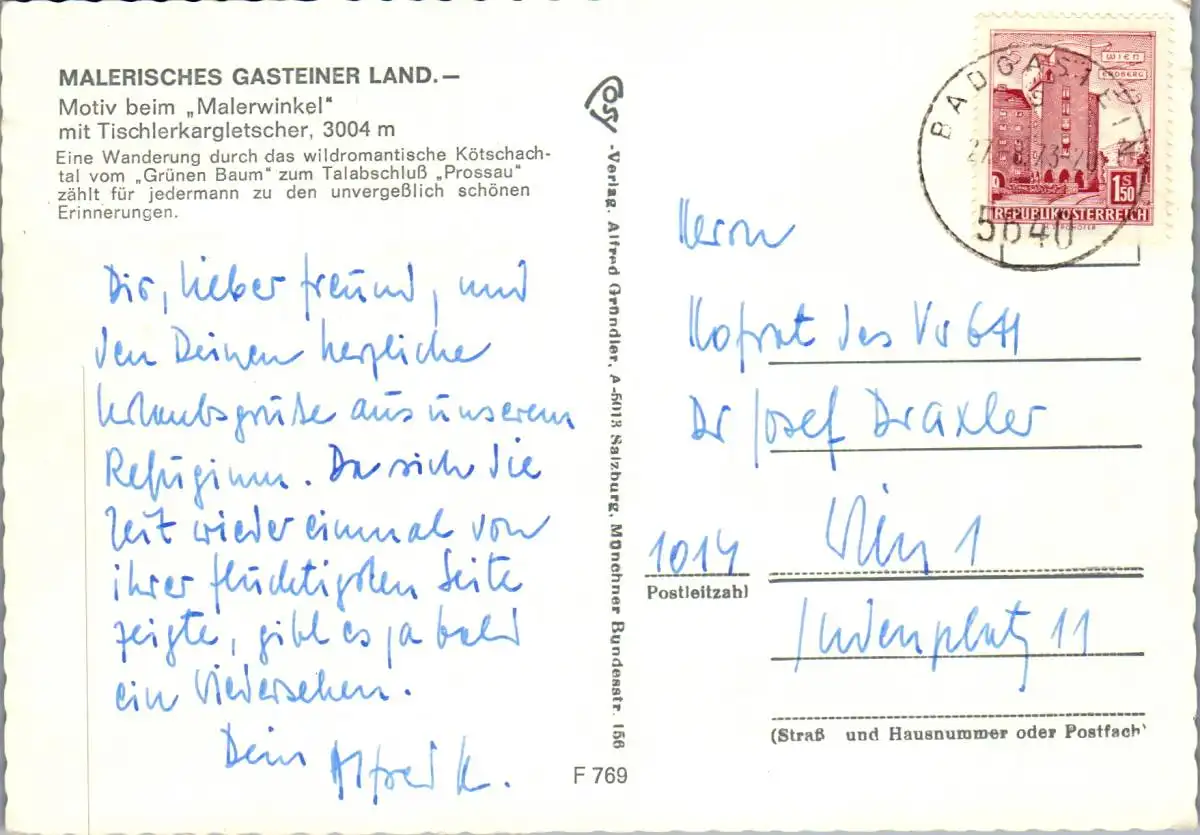 MALERISCHES GASTEINER LAND.—
Motiv beim „Malerwinkel"
mit Tischlerkargletscher, 3004 m
Eine Wanderung durch das wildromantische Kötschach-
tal vom „Grünen Baum" zum Talabschluß „Prossau"
zählt für jedermann zu den unvergeßlich schönen
Erinnerungen.
Dir, lieber Freund, und
den Deinen herzliche
Urlaubsgrüße aus unserem
Refugium. Da sich die
Zeit wieder einmal von
ihrer flüchtigsten Seite
zeigte, gibt es ja bald
ein Wiedersehen.
Dein Alfred K.
-Verlag, Alfred Gründler, A-5013 Salzburg, Münchner Bundesstr. 156
F 769
WIEN
ERDBERG
1S50
REPUBLIK ÖSTERREICH
BADGASTEIN
5640
Herrn
Hofrat des VwGH
Dr Josef Draxler
1014 Wien 1
Postleitzahl
Judenplatz 11
(Straß und Hausnummer oder Postfach